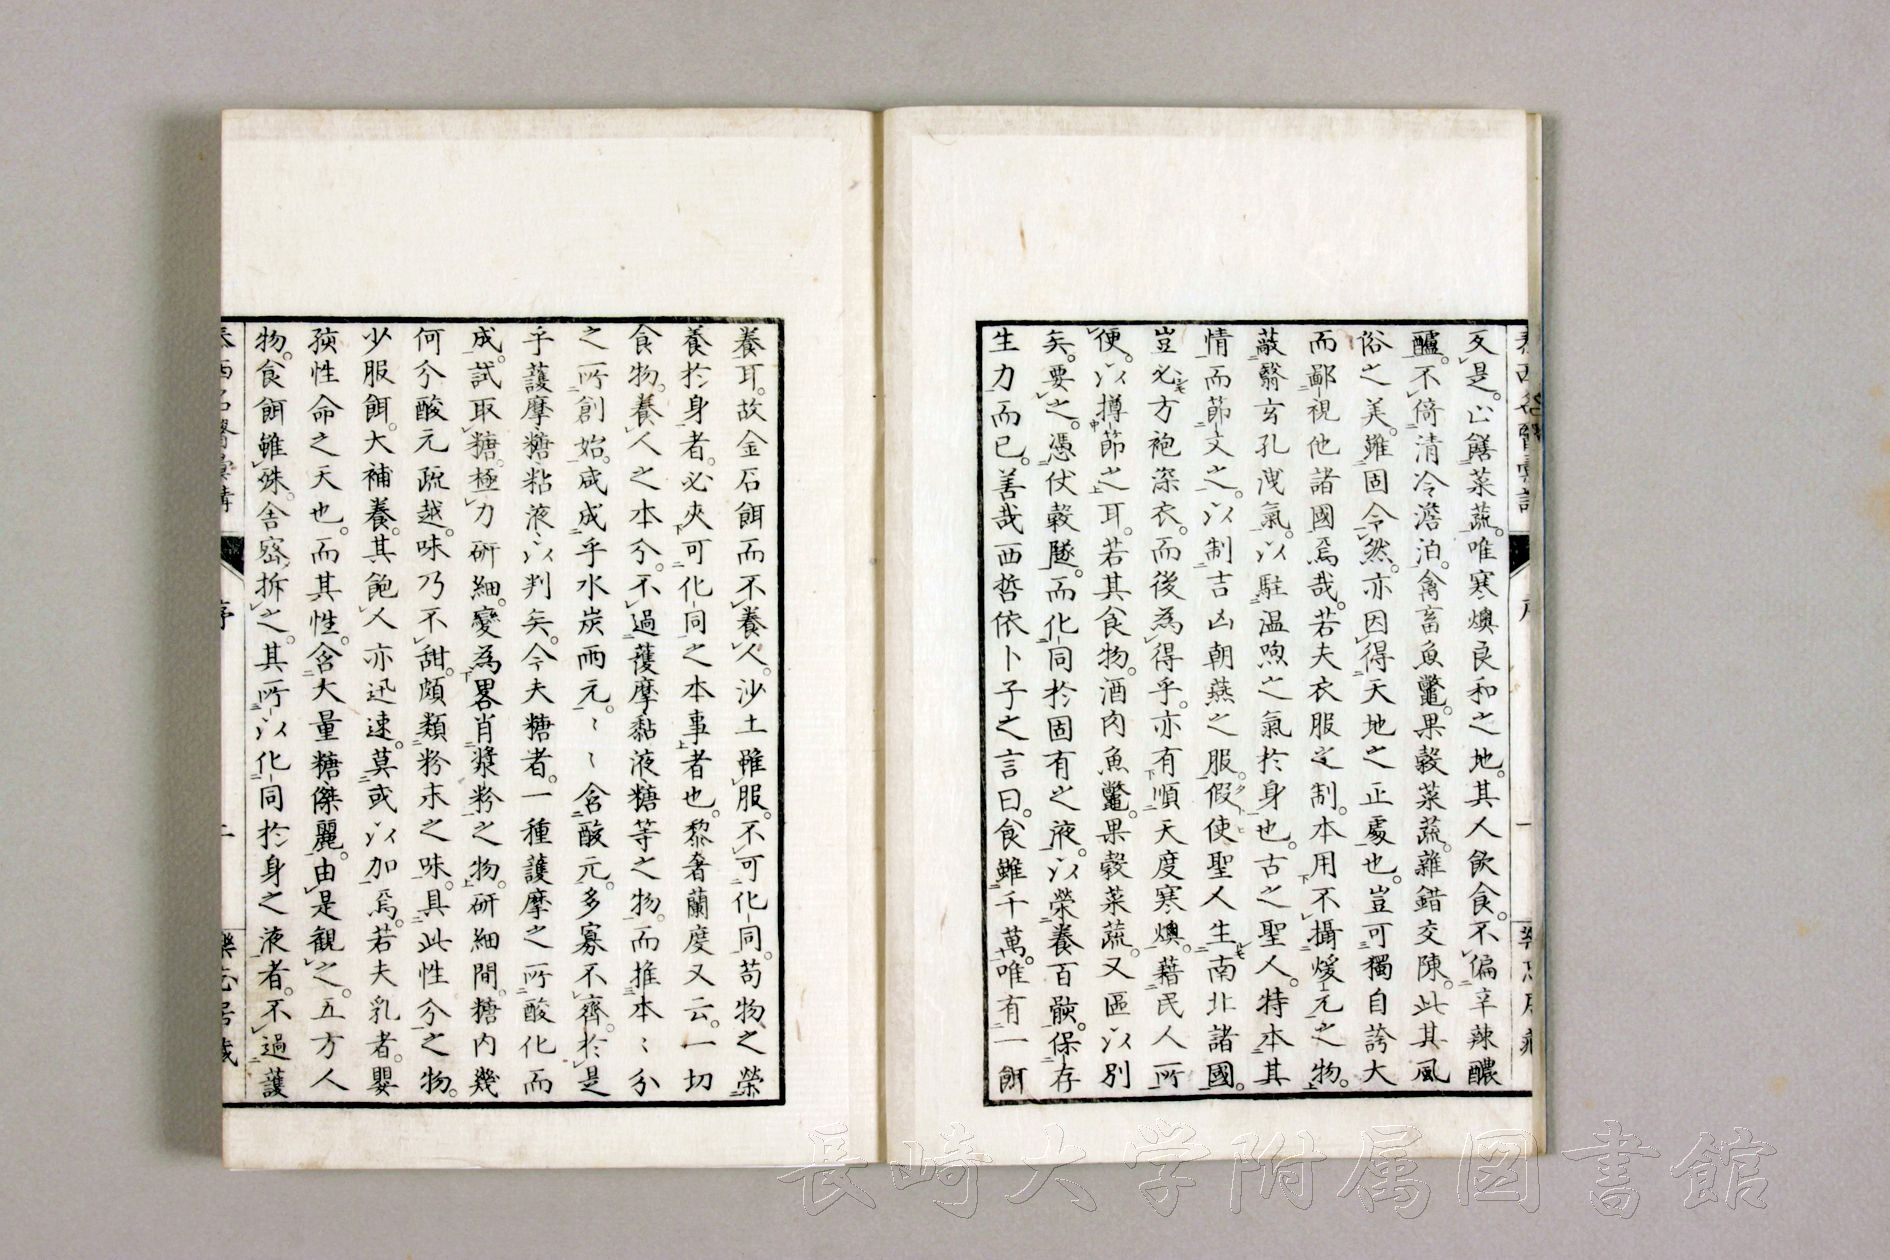 反是。止饍菜蔬。唯寒燠良和之地。其人飲食。不偏辛辣醲
醯。不倚清冷澹泊。禽畜魚鼈。果穀菜蔬。雜錯交陳。此其風
俗之美。雖固令然。亦因得天地之正處也。豈可獨自誇大
而鄙視他諸國焉哉。若夫衣服定制。本用不攝煖元之物。
蔽翳玄孔洩氣。以駐温煦之氣於身也。古之聖人。特本其
情而節文之。以制吉凶朝燕之服。假使聖人生南北諸國。
豈必方袍深衣。而後為得乎。亦有順天度寒燠。藉民人所
便。以撙節之耳。若其食物。酒肉魚鼈。果穀菜蔬。又區以別
矣。要之。憑伏穀隧。而化同於固有之液。以榮養百骸。保存
生力而已。善哉西哲依卜子之言曰。食雖千萬。唯有一餌
養耳。故金石餌而不養人。沙土雖服。不可化同。苟物之榮
養於身者。必夾可化同之本事者也。黎奢蘭度又云。一切
食物。養人之本分。不過蒦摩黏液糖等之物。而推本〻分
之所創始。咸成乎水炭両元。〻〻含酸元。多寡不齊。於是
乎護摩糖粘液以判矣。今夫糖者。一種護摩之所酸化而
成。試取糖。極力研細。變為畧肖漿粉之物。研細間。糖内幾
何分酸元疏越。味乃不甜。頗類粉末之味。具此性分之物。
少服餌。大補養。其飽人亦迅速。莫或以加焉。若夫乳者。嬰
孩性命之天也。而其性。含大量糖傑麗。由是観之。五方人
物。食餌雖殊。舎密拆之。其所以化同於身之液者。不過護
序
長崎大学附属図書館